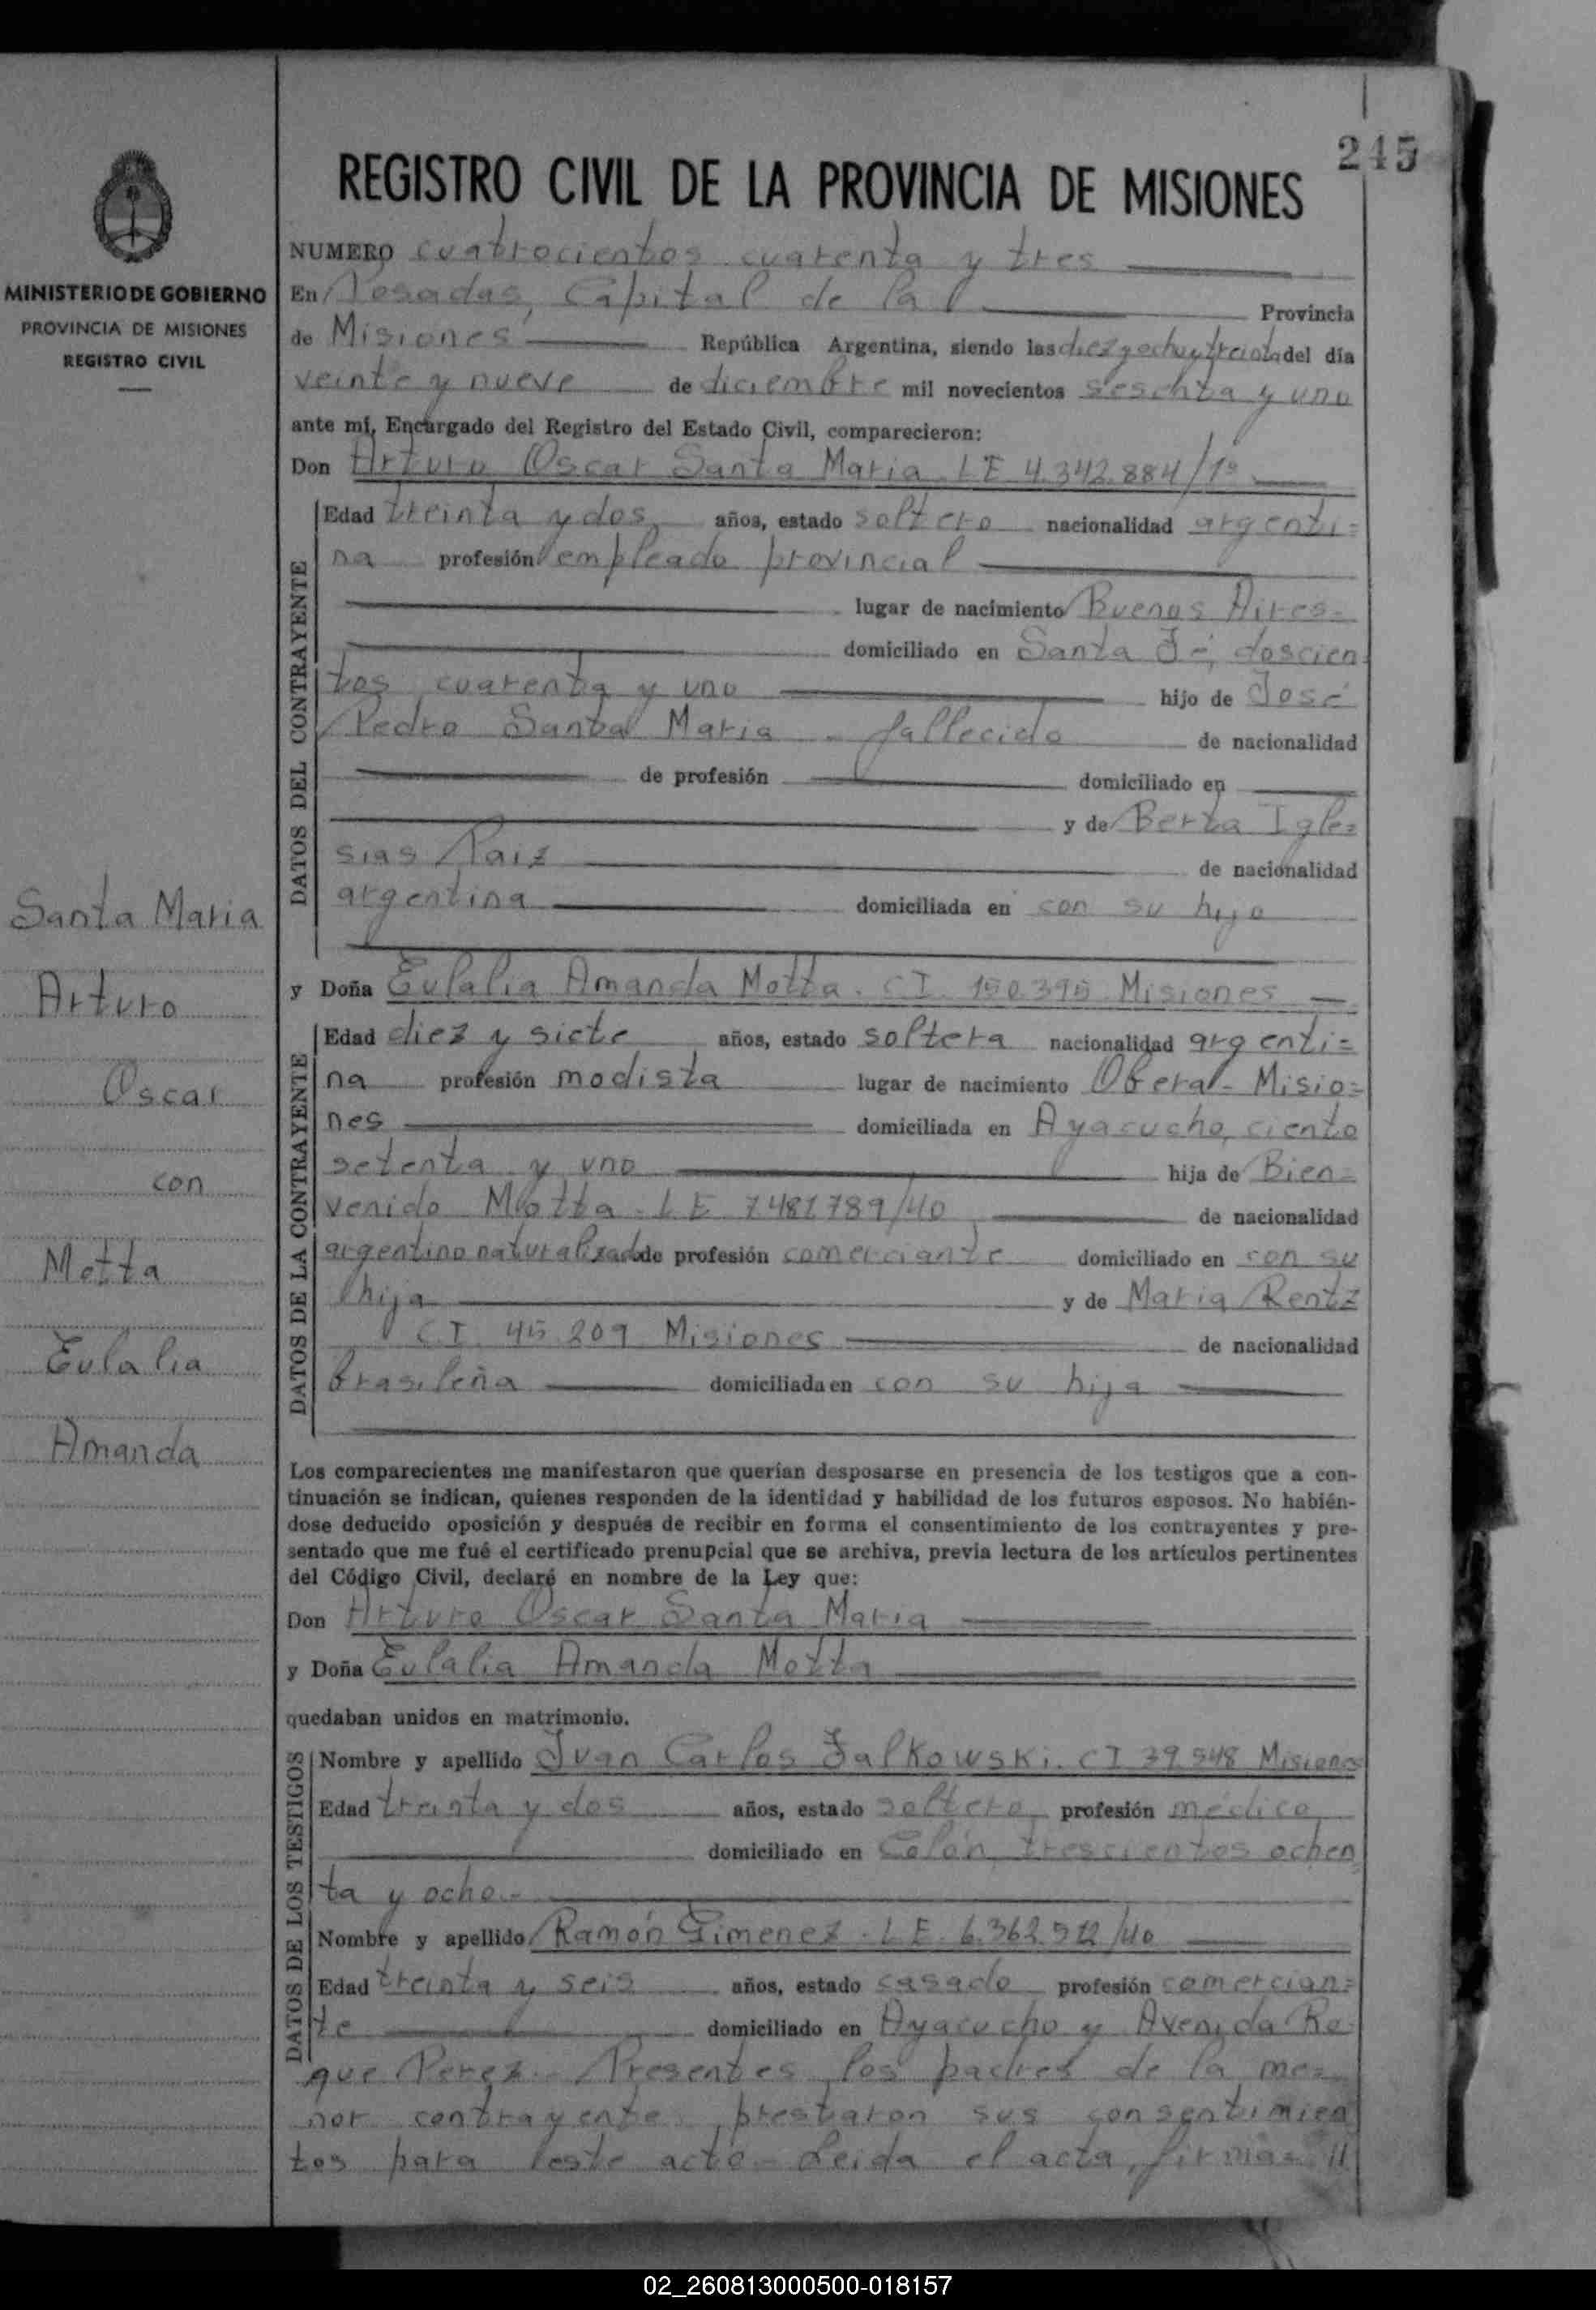 245
REGISTRO CIVIL DE LA PROVINCIA DE MISIONES
MINISTERIO DE GOBIERNO
PROVINCIA DE MISIONES
REGISTRO CIVIL
NUMERO cuatrocientos cuarenta y tres
En Posadas, Capital de la Provincia
de Misiones República Argentina, siendo las diez y ocho y treinta del día
veinte y nueve de diciembre mil novecientos sesenta y uno
ante mí, Encargado del Registro del Estado Civil, comparecieron:
Don Arturo Oscar Santa Maria. LE 4.342.884/1ª
DATOS DEL CONTRAYENTE
Edad treinta y dos años, estado soltero nacionalidad argenti=
na profesión empleado provincial
lugar de nacimiento Buenos Aires-
domiciliado en Santa Fé, doscien
tos cuarenta y uno hijo de José
Pedro Santa Maria - fallecido de nacionalidad
de profesión domiciliado en
y de Berta Igle=
sias Paiz de nacionalidad
argentina domiciliada en con su hijo
y Doña Eulalia Amanda Motta. CI. 150.395 Misiones
DATOS DE LA CONTRAYENTE
Edad diez y siete años, estado soltera nacionalidad argenti=
na profesión modista lugar de nacimiento Obera - Misio=
nes domiciliada en Ayacucho, ciento
setenta y uno hija de Bien=
venido Motta. LE 7481789/40 de nacionalidad
argentino naturalizado de profesión comerciante domiciliado en con su
hija y de Maria Rentz
CI. 45.209 Misiones de nacionalidad
brasileña domiciliada en con su hija
Los comparecientes me manifestaron que querían desposarse en presencia de los testigos que a con-
tinuación se indican, quienes responden de la identidad y habilidad de los futuros esposos. No habién-
dose deducido oposición y después de recibir en forma el consentimiento de los contrayentes y pre-
sentado que me fué el certificado prenupcial que se archiva, previa lectura de los artículos pertinentes
del Código Civil, declaré en nombre de la Ley que:
Don Arturo Oscar Santa Maria
y Doña Eulalia Amanda Motta
quedaban unidos en matrimonio.
DATOS DE LOS TESTIGOS
Nombre y apellido Juan Carlos Falkowski. CI 39.548 Misiones
Edad treinta y dos años, estado soltero profesión médico
domiciliado en Colón, trescientos ochen
ta y ocho.-
Nombre y apellido Ramón Gimenez. LE. 6.362.512/40
Edad treinta y seis años, estado casado profesión comercian=
te domiciliado en Ayacucho y Avenida Ro
que Perez.- Presentes los padres de la me=
nor contrayente prestaron sus consentimien
tos para este acto - Leida el acta, firma= //
Santa Maria
Arturo
Oscar
con
Motta
Eulalia
Amanda
02_260813000500-018157